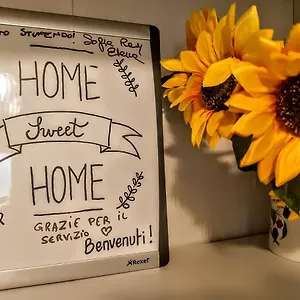 STUPENDO! Sofia
HOME
Sweet
HOME
GRAZIE PER IL
SERVIZIO
Benvenuti!
Rexel